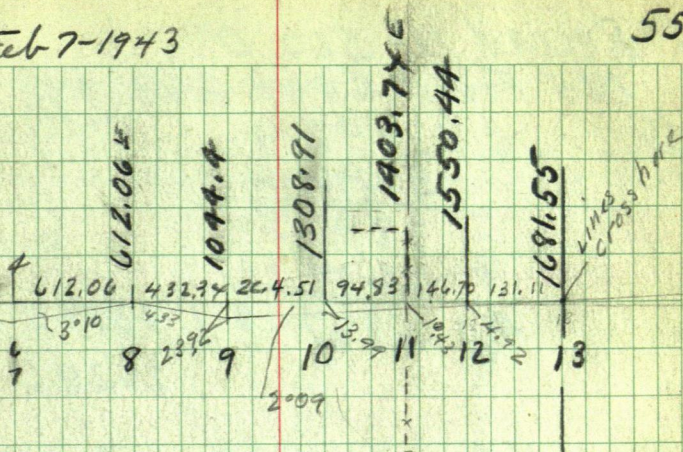 Feb 7-1943
55
612.06
1044.4
1308.91
1403.74 E
1550.44
1681.55
Lines
cross here
612.06 432.34 264.51 94.83 146.70 131.11
3°10
433
23.96
13.99
14.92
6
7
8 9 10 11 12 13
2°09